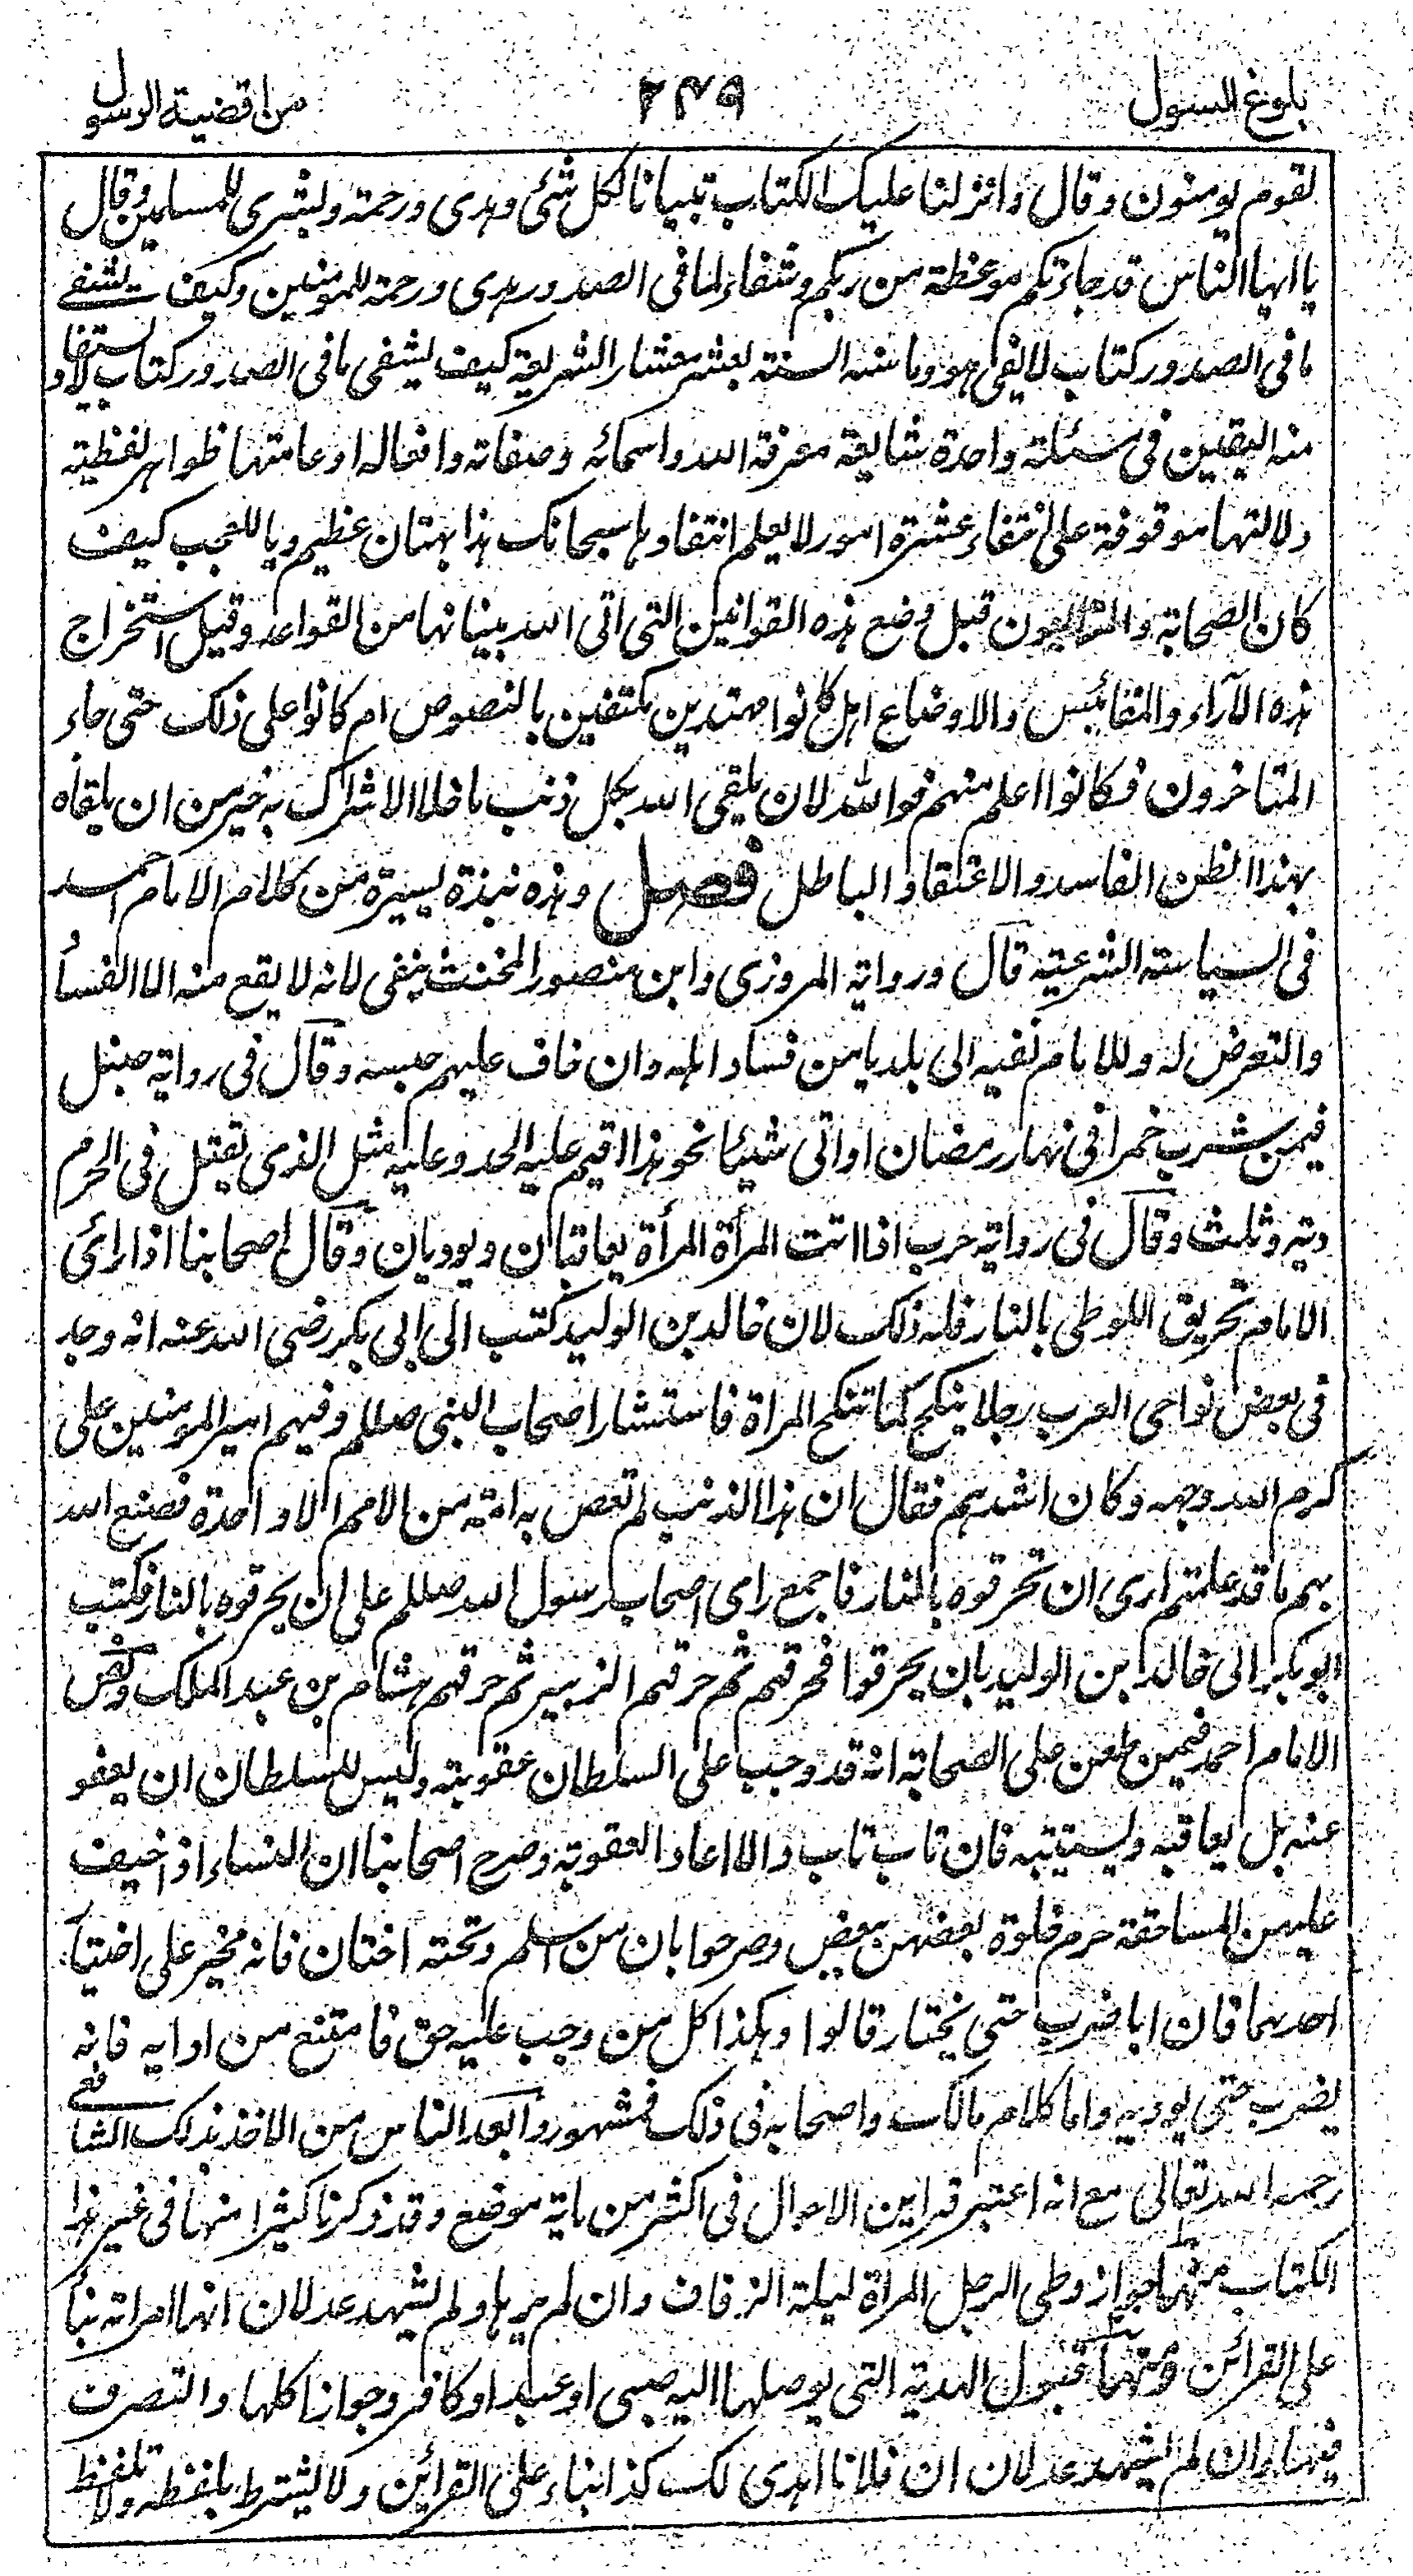 بلوغ السول ٢٤٩ من اقضية الرسول
لقوم يومنون وقال وانزلنا عليك الكتاب تبيانا لكل شئى وهدى ورحمة وبشرى للمسلمين وقال
يا ايها الناس قد جاءتكم موعظة من ربكم وشفاء لما فى الصدور وهدى ورحمة للمومنين وكيف يشفى
ما فى الصدور كتاب لا يفى هو وما سنه السنة بعشر معشار الشريعة كيف يشفى ما فى الصدور كتاب لا يستفاد
منه اليقين فى مسئلة واحدة شايعة معرفة الله واسمائه وصفاته وافعاله او عامتها ظواهر لفظية
دلالتها موقوفة على انتفاء عشرة امور لا يعلم انتفاوها سبحانك هذا بهتان عظيم ويا للعجب كيف
كان الصحابة والتابعون قبل وضع هذه القوانين التى اتى الله بنيانها من القواعد وقبل استخراج
هذه الآراء والمقائيس والاوضاع اهل كانوا مهتدين مكتفين بالنصوص ام كانوا على ذلك حتى جاء
المتاخرون فكانوا اعلم منهم فوالله لان يلقى الله بكل ذنب ما خلا الاشراك به خير من ان يلقاه
بهذا الظن الفاسد والاعتقاد الباطل فصل وهذه نبذة يسيرة من كلام الامام احمد
فى السياسة الشرعية قال ورواية المروزى وابن منصور المخنث ينفى لانه لا يقع منه الا الفساد
والتعرض له وللامام نفيه الى بلد يامن فساد اهله وان خاف عليهم حبسه وقال فى رواية حنبل
فيمن شرب خمرا فى نهار رمضان او اتى شيئا نحو هذا اقيم عليه الحد وعليه مثل الذى يقتل فى الحرم
دية وثلث وقال فى رواية حرب اذا اتت المرأة المرأة يعاقبان ويوديان وقال اصحابنا اذا رائى
الامام تحريق اللوطى بالنار فله ذلك لان خالد بن الوليد كتب الى ابى بكر رضى الله عنه انه وجد
فى بعض نواحى العرب رجلا ينكح كما تنكح المراة فاستشار اصحاب النبى صللم وفيهم امير المومنين على
كرم الله وجهه وكان اشدهم فقال ان هذا الذنب لم تعص به امة من الامم الا واحدة فصنع الله
بهم ما قد علمتم ارى ان تحرقوه بالنار فاجمع راى اصحاب رسول الله صللم على ان يحرقوه بالنار فكتب
ابو بكر الى خالد ابن الوليد بان يحرقوا فحرقهم ثم حرقهم الزبير ثم حرقهم هشام بن عبد الملك ونص
الامام احمد فيمن طعن على الصحابة انه قد وجب على السلطان عقوبته وليس للسلطان ان يعفو
عنه بل يعاقبه ويستتيبه فان تاب تاب والا اعاد العقوبة وصرح اصحابنا ان النساء اذا خيف
عليهن المساحقة حرم خلوة بعضهن ببعض وصرحوا بان من اسلم وتحته اختان فانه مخير على اختيار
احدهما فان ابا ضرب حتى يختار قالوا وهكذا كل من وجب عليه حق فامتنع من ادايه فانه
يضرب حتى يوديه واما كلام مالك واصحابه فى ذلك فمشهور وابعد الناس من الاخذ بذلك الشافعى
رحمه الله تعالى مع انه اعتبر قراين الاحوال فى اكثر من ماية موضع وقد ذكرنا كثيرا منها فى غير هذا
الكتاب منها جواز وطى الرجل المراة ليلة الزفاف وان لم يرها ولم يشهد عدلان انها امراته بناء
على القرائن ومنها قبول الهدية التى يوصلها اليه صبى او عبد او كافر وجواز اكلها والتصرف
فيها وان لم يشهد عدلان ان فلانا اهدى لك كذا بناء على القرائن ولا يشترط بلفظه ولا تلفظ